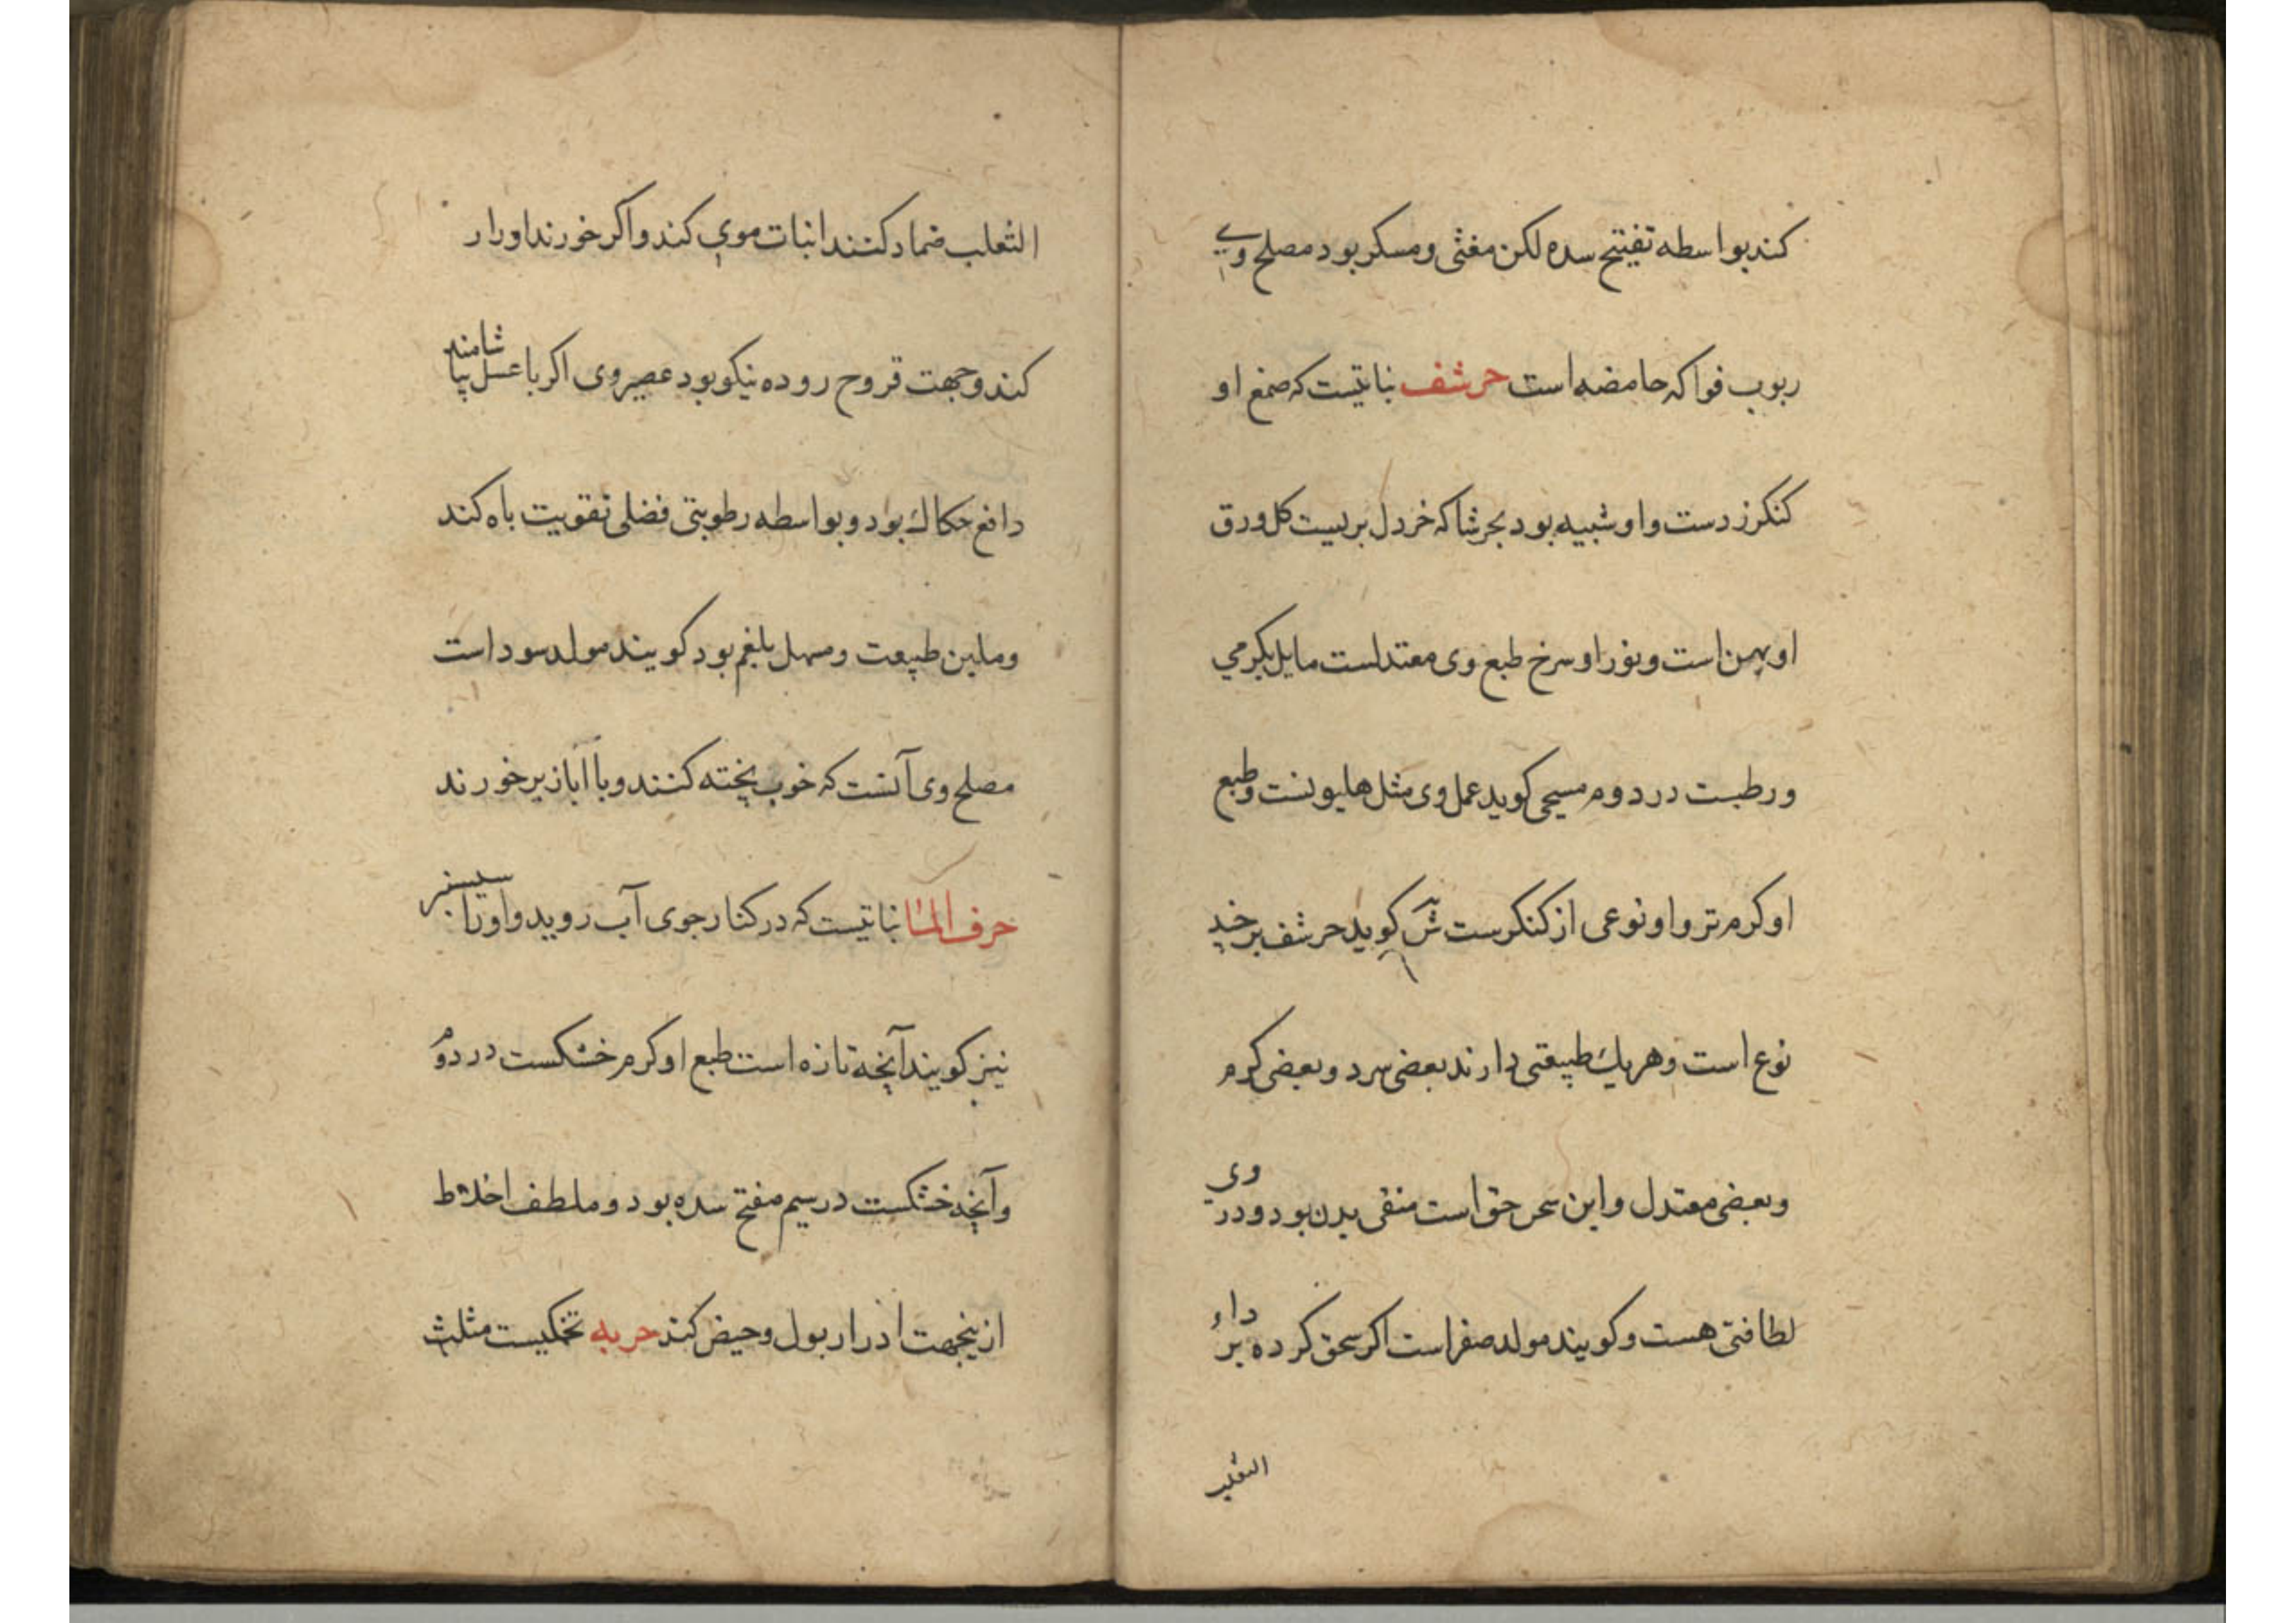 کند بواسطه تفتیح سده لکن مغثی و مسکر بود مصلح وی
ربوب فواکه حامضه است حرشف نباتیست که صمغ او
کنکرزدست و او شبیه بود بحرشا که خردل بریست کل ورق
او پهن است و نور او سرخ طبع وی معتدلست مایل بکرمی
و رطبست در دوم مسیحی کوید عمل وی مثل هلیونست و طبع
او کرم تر و او نوعی از کنکرست کوید حرشف بر چند
نوع است و هر یك طبیعتی دارند بعضی سرد و بعضی کرم
و بعضی معتدل و این سخن حق است منقی بدن بود و در وی
لطافتی هست و کویند مولد صفراست اکر سحق کرده بر داء
الثعلب
الثعلب ضماد کنند انبات موی کند و اکر خورند اورار
کند و جهت قروح روده نیکو بود عصیر وی اکر با عسل بیاشامند
دافع حکاك بود و بواسطه رطوبتی فضلی تقویت باه کند
و ملین طبیعت و مسهل بلغم بود کویند مولد سوداست
مصلح وی آنست که خوب پخته کنند و با ابازیر خورند
حرف الما نباتیست که در کنار جوی آب روید و اورا سیسنبر
نیز کویند آنچه تازه است طبع او کرم خشکست در دوم
و آنچه خشکست در سیم مفتح سده بود و ملطف اخلاط
ازینجهت ادرار بول و حیض کند حربه تخمکیست مثلث